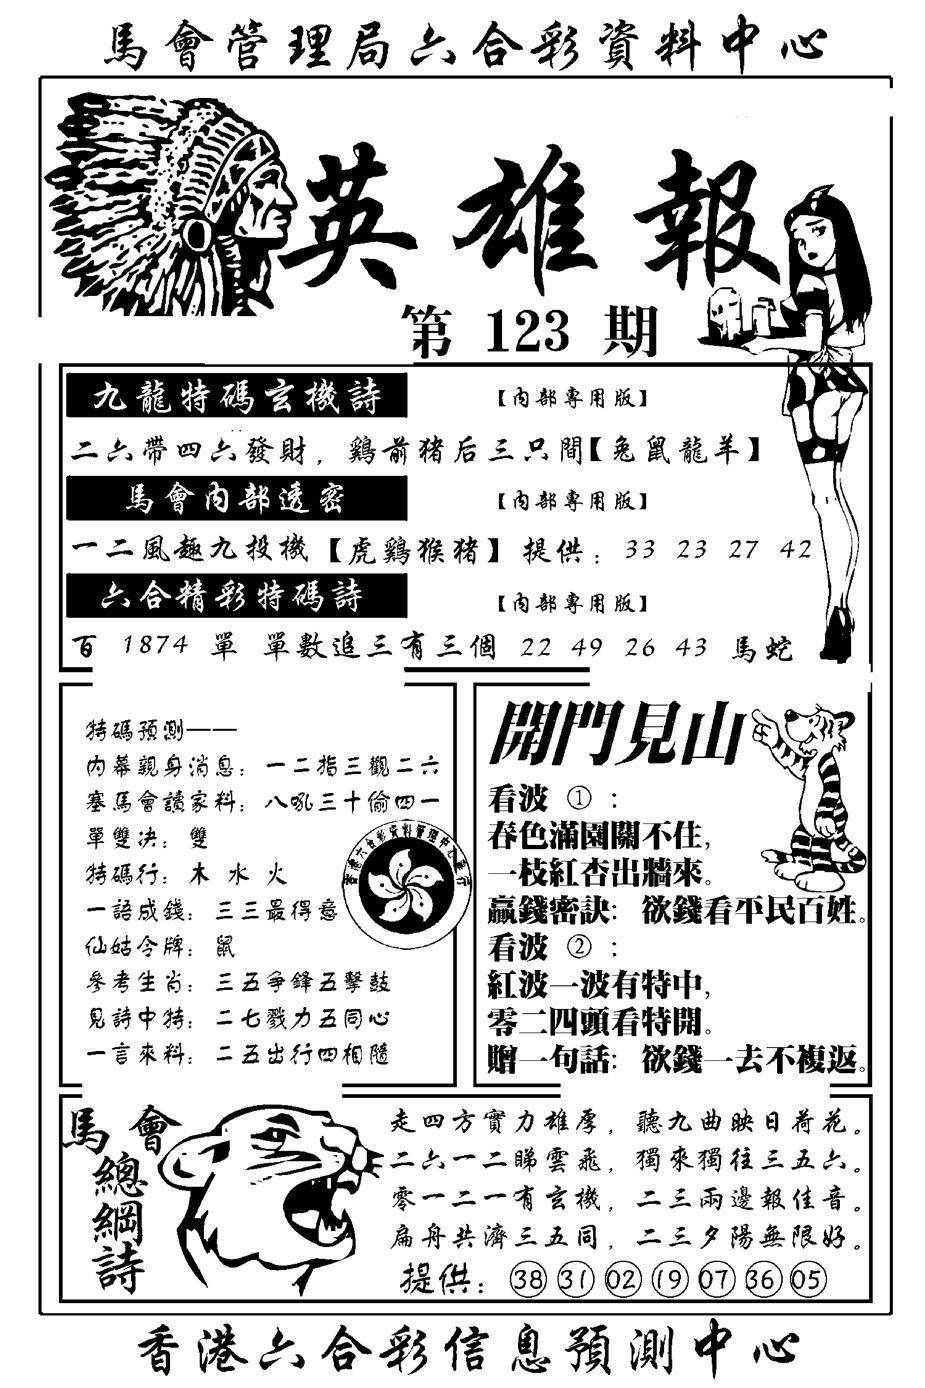 馬會管理局六合彩資料中心
英雄報
第 123 期
九龍特碼玄機詩 【內部專用版】
二六帶四六發財，鷄前猪后三只間【兔鼠龍羊】
馬會內部透密 【內部專用版】
一二風趣九投機【虎鷄猴猪】 提供：33 23 27 42
六合精彩特碼詩 【內部專用版】
百 1874 單 單數追三有三個 22 49 26 43 馬蛇
特碼預測——
內幕親身消息：一二指三觀二六
塞馬會讀家料：八吼三十偷四一
單雙决：雙
特碼行：木 水 火
一語成錢：三三最得意
仙姑令牌：鼠
參考生肖：三五争鋒五擊鼓
見詩中特：二七戮力五同心
一言來料：二五出行四相隨
開門見山
看波 ①：
春色滿園關不住，
一枝紅杏出牆來。
贏錢密訣：欲錢看平民百姓。
看波 ②：
紅波一波有特中，
零二四頭看特開。
贈一句話：欲錢一去不複返。
馬會
總綱詩
走四方實力雄厚，聽九曲映日荷花。
二六一二睇雲飛，獨來獨往三五六。
零一二一有玄機，二三兩邊報佳音。
扁舟共濟三五同，二三夕陽無限好。
提供：38 31 02 19 07 36 05
香港六合彩信息預測中心